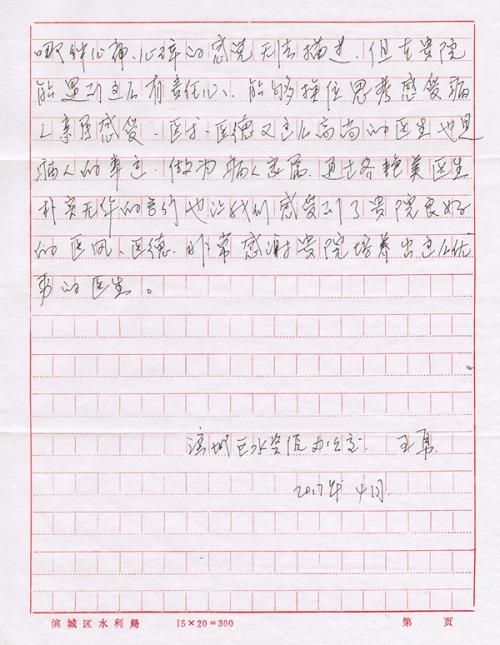 那种心痛、心碎的感觉无法描述,但在贵院
能遇到这么有责任心、能够换位思考感受病
人亲属感受、医术、医德又这么高尚的医生也是
病人的幸运,做为病人家属,通过艳美医生
朴实无华的言行也让我们感受到了贵院良好
的医风、医德,非常感谢贵院培养出这么优
秀的医生。
滨城区水资源办公室 王勇
2017年4月
滨城区水利局 15×20=300 第 页